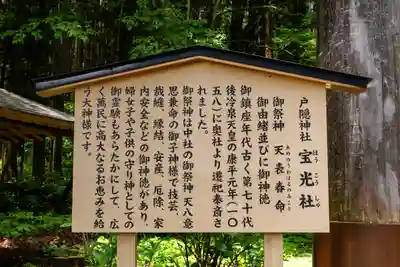 戸隠神社 宝光社
ほうこうしゃ
御由緒並びに御神徳
御祭神 天表春命
あめのうわはるのみこと
御鎮座年代古く第七十代
後冷泉天皇の康平元年(一〇
五八)に奥社より遷祀奉斎さ
れました。
御祭神は中社の御祭神天八意
思兼命の御子神様で技芸、
裁縫、縁結、安産、厄除、家
内安全などの御神徳があり、
婦女子や子供の守り神としての
御霊験もあらたかにして、広
く萬民に高大なるお恵みを給
う大神様です。